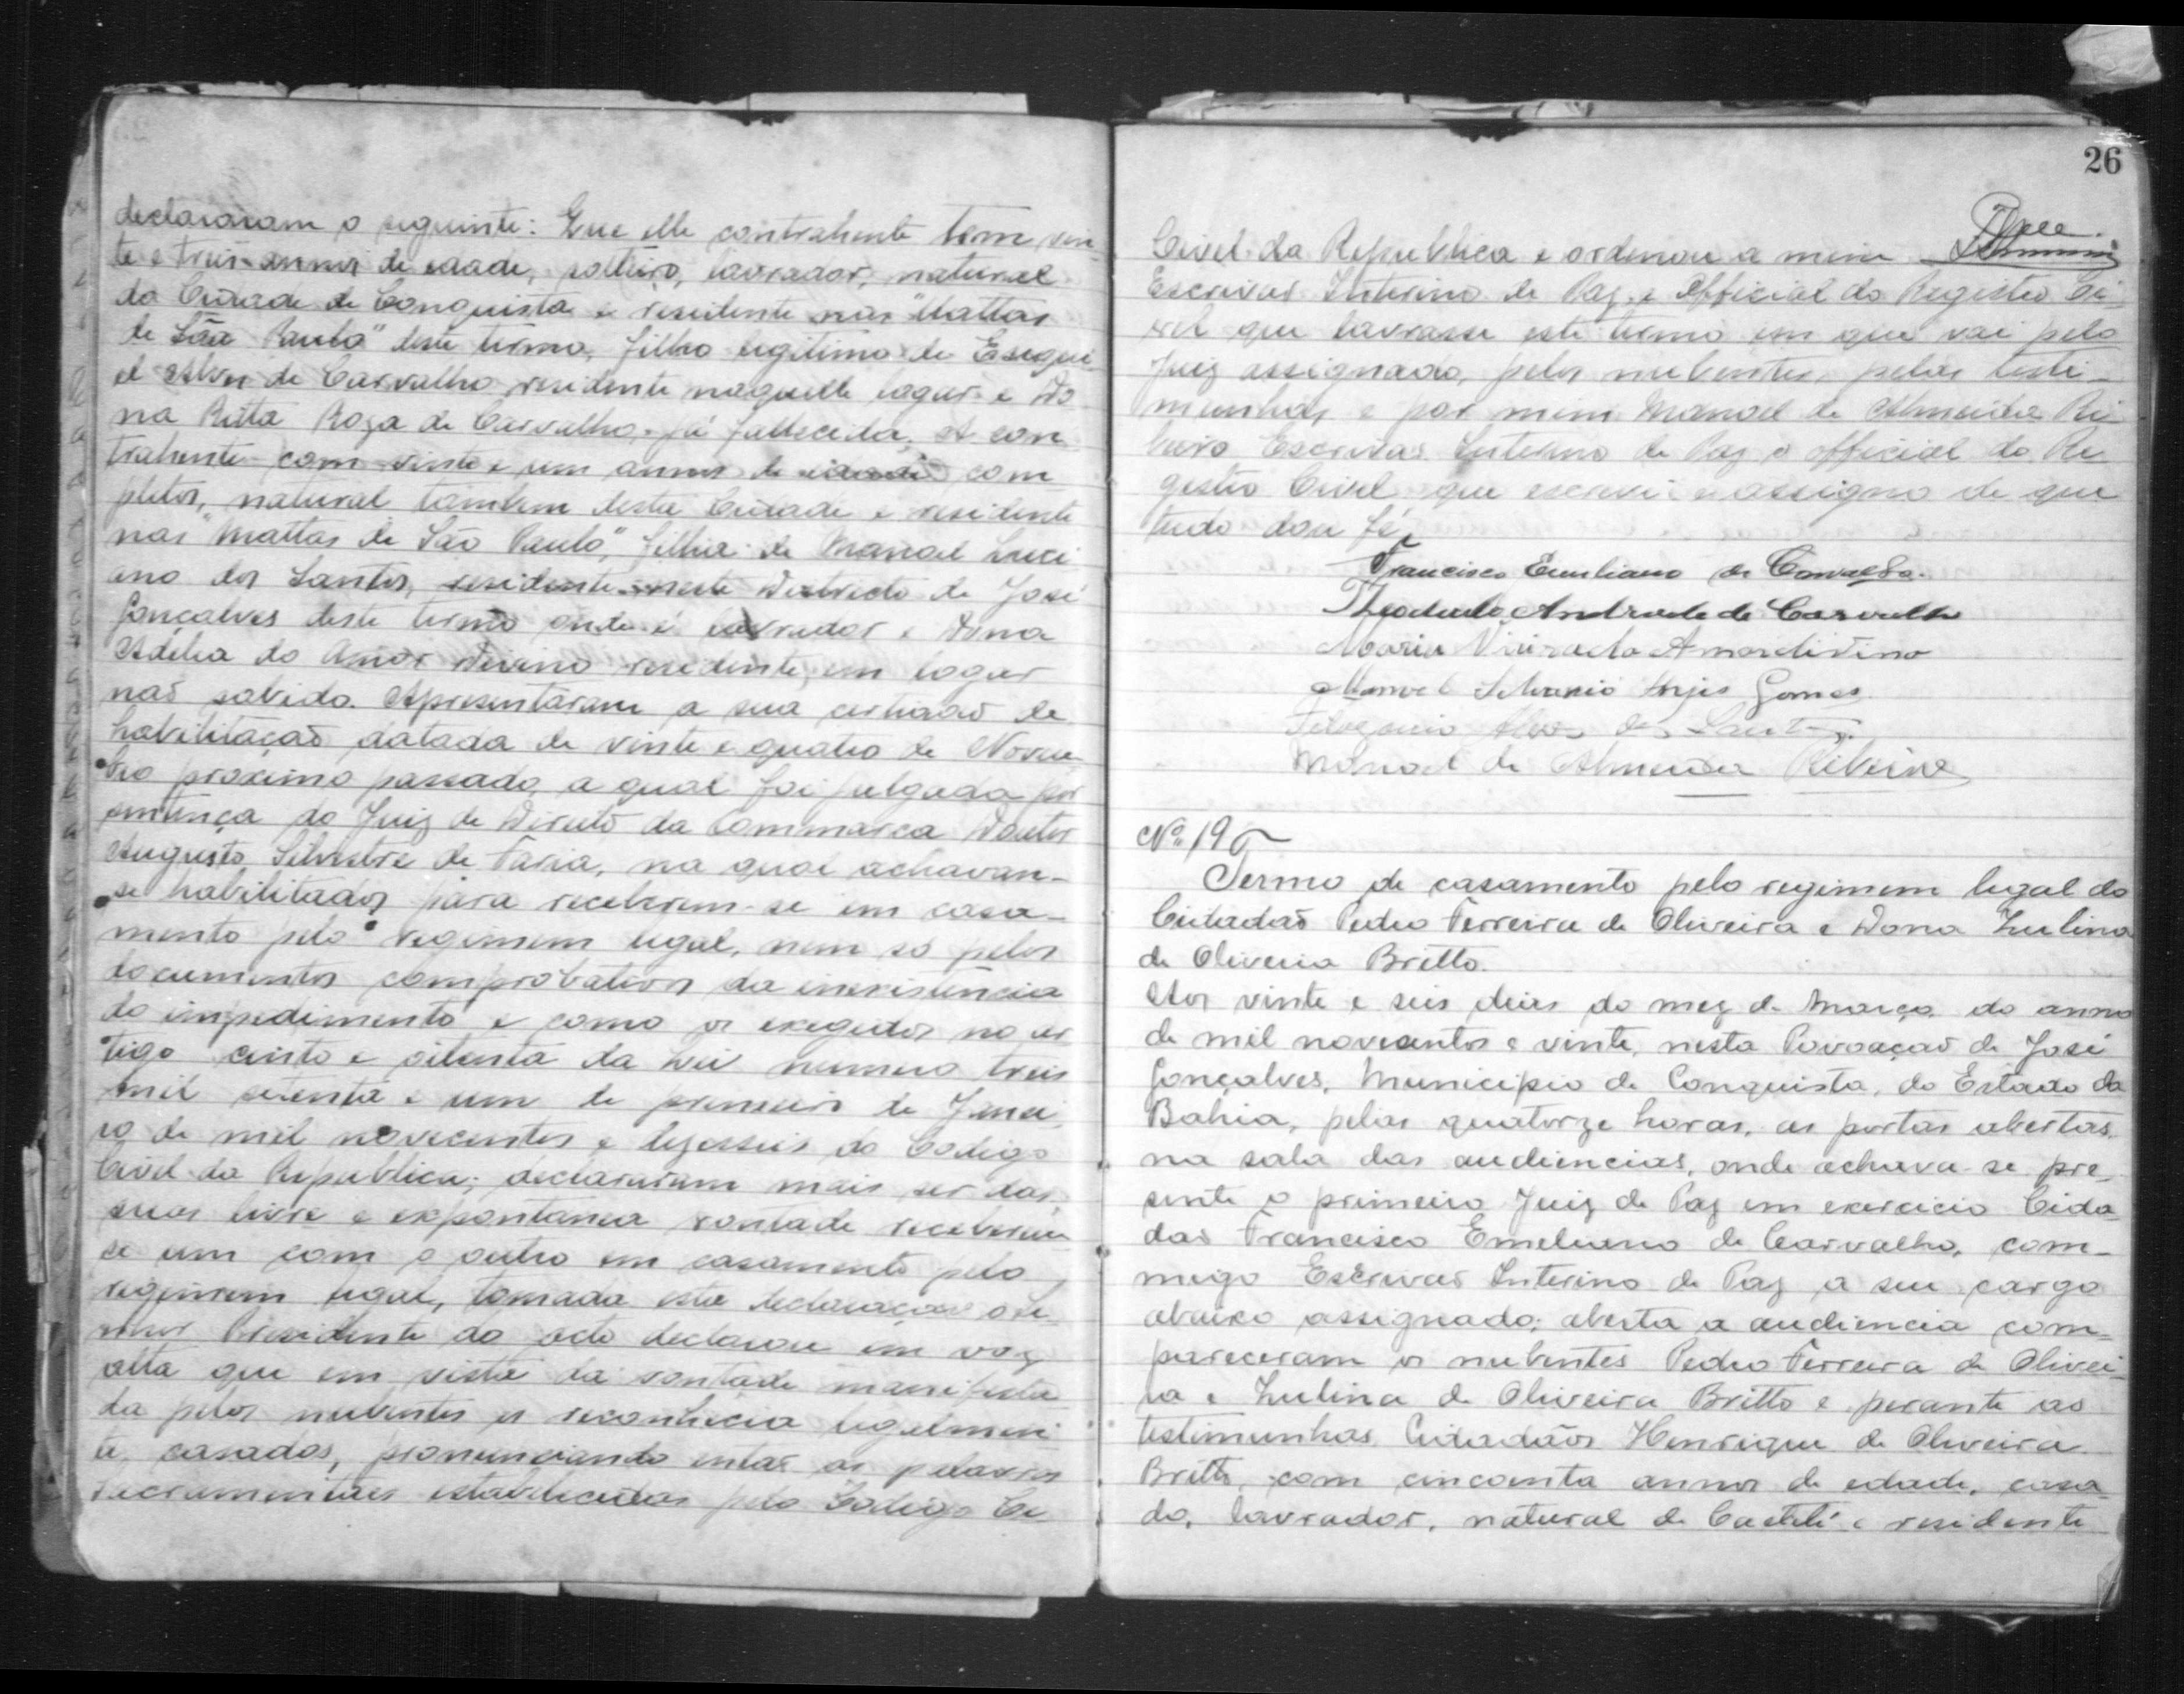 declararam o seguinte: Que elle contrahente tem vin
te e treis annos de edade, solteiro, lavrador, natural
da Cidade de Conquista e residente nas "Mattas
de São Paulo" deste termo, filho legitimo de Esequi
el Alves de Carvalho residente naquelle logar e Do
na Ritta Roza de Carvalho, já fallecida. A con
trahente com vinte e um annos de edade com
pletos, natural tambem desta Cidade e residente
nas "Mattas de São Paulo," filha de Manoel Luci
ano dos Santos, residente neste Districto de José
Gonçalves deste termo onde é lavrador e Dona
Adelia do Amor Divino residente, em logar
não sabido. Apresentaram a sua certidão de
habilitação datada de vinte e quatro de Novem
bro proximo passado, a qual foi julgada por
sentença do Juiz de Direito da Commarca Doutor
Augusto Silvestre de Faria, na qual achavam-
se habilitados para receberem-se em casa-
mento pelo regimem legal, nem so pelos
documentos comprobativos da inexistencia
do impedimento e como os exegidos no ar
tigo cento e oitenta da Lei numero treis
mil setenta e um de primeiro de Janei
ro de mil novecentos e dezesseis do Codigo
Civel da Republica; declararam mais ser das
suas livre e expontanea vontade receberem
se um com o outro em casamento pelo
regimem legal, tomada esta declaração o Se
nhor Presidente do acto declarou em voz
alta que em vista da vontade manifesta
da pelos nubentes os reconhecia legalmen
te casados, pronunciando entao as palavras
sacramentaes estabelecidas pelo Codigo Ci
26
Civel da Republica e ordenou a mim
Escrivao Interino de Paz e Official do Registro Ci
vel que lavrasse este termo em que vai pelo
Juiz assignado, pelos nubentes, pelas teste-
munhas e por mim Manoel de Almeida Ri
beiro Escrivao Interino de Paz e official do Re
gistro Civel que escrevi e assigno de que
tudo dou fé,
Francisco Emiliano de Carvalho.
Theodulo Andrade de Carvalho
Maria Vieira do Amordivino
Manoel Silvario Anjos Gomes
Alves dos Santos
Manoel de Almeida Ribeiro
Nº 19
Termo de casamento pelo regimem legal do
Cidadão Pedro Ferreira de Oliveira e Dona Zulina
de Oliveira Britto.
Aos vinte e seis dias do mez de Março do anno
de mil novecentos e vinte, nesta Povoação de José
Gonçalves, Municipio de Conquista, do Estado da
Bahia, pelas quatorze horas, as portas abertas,
na sala das audiencias, onde achava-se pre-
sente o primeiro Juiz de Paz em exercicio Cida
dao Francisco Emeliano de Carvalho, com-
migo Escrivao Interino de Paz a seu cargo
abaixo assignado; aberta a audiencia com-
pareceram os nubentes Pedro Ferreira de Olivei-
ra e Zulina de Oliveira Britto e perante as
testimunhas Cidadãos Henrique de Oliveira
Britto, com cincoenta annos de edade, casa-
do, lavrador, natural de Caeteté e residente